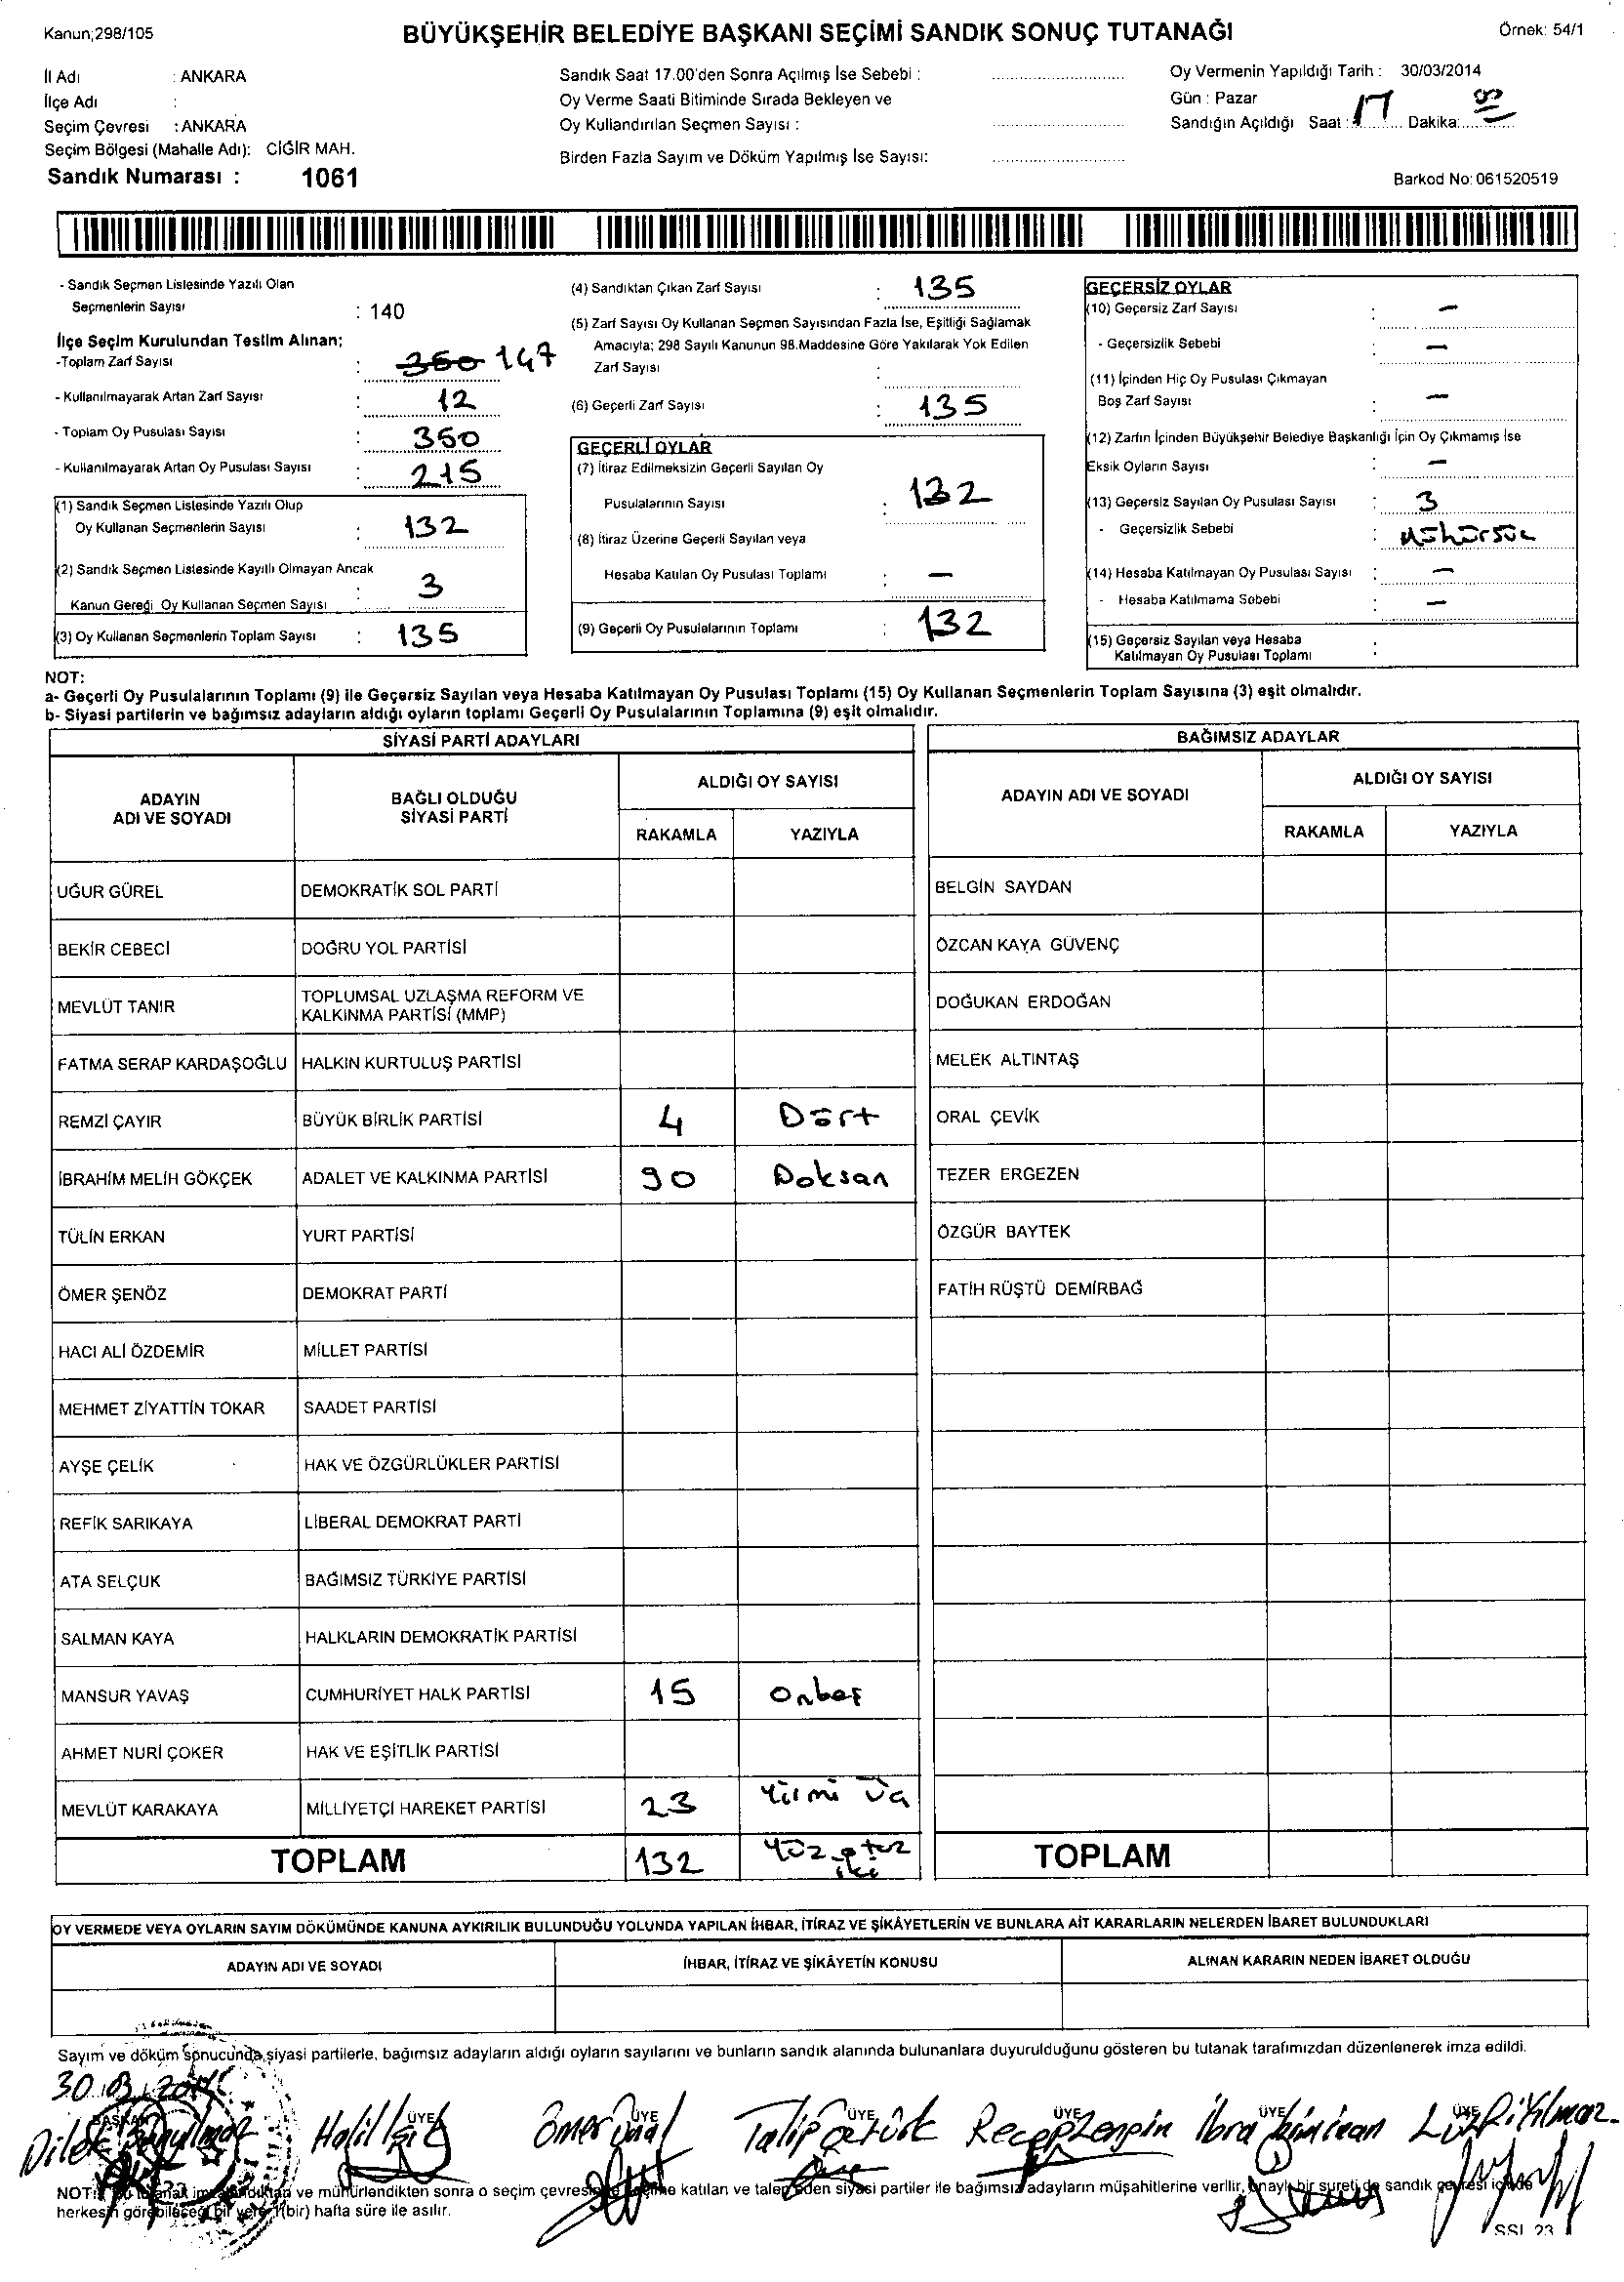 Kanun;298/105
BÜYÜKŞEHİR BELEDİYE BAŞKANI SEÇİMİ SANDIK SONUÇ TUTANAĞI
Örnek: 54/1
İl Adı : ANKARA
İlçe Adı :
Seçim Çevresi : ANKARA
Seçim Bölgesi (Mahalle Adı): CİĞİR MAH.
Sandık Numarası : 1061
Sandık Saat 17.00'den Sonra Açılmış İse Sebebi :
Oy Verme Saati Bitiminde Sırada Bekleyen ve
Oy Kullandırılan Seçmen Sayısı :
Birden Fazla Sayım ve Döküm Yapılmış İse Sayısı:
Oy Vermenin Yapıldığı Tarih : 30/03/2014
Gün : Pazar
Sandığın Açıldığı Saat : 17 Dakika:
Barkod No: 061520519
- Sandık Seçmen Listesinde Yazılı Olan
Seçmenlerin Sayısı : 140
İlçe Seçim Kurulundan Teslim Alınan;
-Toplam Zarf Sayısı : 360 147
- Kullanılmayarak Artan Zarf Sayısı : 12
- Toplam Oy Pusulası Sayısı : 350
- Kullanılmayarak Artan Oy Pusulası Sayısı : 215
(1) Sandık Seçmen Listesinde Yazılı Olup
Oy Kullanan Seçmenlerin Sayısı : 132
(2) Sandık Seçmen Listesinde Kayıtlı Olmayan Ancak
Kanun Gereği Oy Kullanan Seçmen Sayısı : 3
(3) Oy Kullanan Seçmenlerin Toplam Sayısı : 135
(4) Sandıktan Çıkan Zarf Sayısı : 135
(5) Zarf Sayısı Oy Kullanan Seçmen Sayısından Fazla İse, Eşitliği Sağlamak
Amacıyla; 298 Sayılı Kanunun 98.Maddesine Göre Yakılarak Yok Edilen
Zarf Sayısı :
(6) Geçerli Zarf Sayısı : 135
GEÇERLİ OYLAR
(7) İtiraz Edilmeksizin Geçerli Sayılan Oy
Pusulalarının Sayısı : 132
(8) İtiraz Üzerine Geçerli Sayılan veya
Hesaba Katılan Oy Pusulası Toplamı : —
(9) Geçerli Oy Pusulalarının Toplamı : 132
GEÇERSİZ OYLAR
(10) Geçersiz Zarf Sayısı : —
- Geçersizlik Sebebi : —
(11) İçinden Hiç Oy Pusulası Çıkmayan
Boş Zarf Sayısı : —
(12) Zarfın İçinden Büyükşehir Belediye Başkanlığı İçin Oy Çıkmamış İse
Eksik Oyların Sayısı : —
(13) Geçersiz Sayılan Oy Pusulası Sayısı : 3
- Geçersizlik Sebebi : Mühürsüz
(14) Hesaba Katılmayan Oy Pusulası Sayısı : —
- Hesaba Katılmama Sebebi : —
(15) Geçersiz Sayılan veya Hesaba
Katılmayan Oy Pusulası Toplamı :
NOT:
a- Geçerli Oy Pusulalarının Toplamı (9) ile Geçersiz Sayılan veya Hesaba Katılmayan Oy Pusulası Toplamı (15) Oy Kullanan Seçmenlerin Toplam Sayısına (3) eşit olmalıdır.
b- Siyasi partilerin ve bağımsız adayların aldığı oyların toplamı Geçerli Oy Pusulalarının Toplamına (9) eşit olmalıdır.
SİYASİ PARTİ ADAYLARI
ADAYIN ADI VE SOYADI
BAĞLI OLDUĞU SİYASİ PARTİ
ALDIĞI OY SAYISI
RAKAMLA YAZIYLA
UĞUR GÜREL DEMOKRATİK SOL PARTİ
BEKİR CEBECİ DOĞRU YOL PARTİSİ
MEVLÜT TANIR TOPLUMSAL UZLAŞMA REFORM VE
KALKINMA PARTİSİ (MMP)
FATMA SERAP KARDAŞOĞLU HALKIN KURTULUŞ PARTİSİ
REMZİ ÇAYIR BÜYÜK BİRLİK PARTİSİ 4 Dört
İBRAHİM MELİH GÖKÇEK ADALET VE KALKINMA PARTİSİ 90 Doksan
TÜLİN ERKAN YURT PARTİSİ
ÖMER ŞENÖZ DEMOKRAT PARTİ
HACI ALİ ÖZDEMİR MİLLET PARTİSİ
MEHMET ZİYATTİN TOKAR SAADET PARTİSİ
AYŞE ÇELİK HAK VE ÖZGÜRLÜKLER PARTİSİ
REFİK SARIKAYA LİBERAL DEMOKRAT PARTİ
ATA SELÇUK BAĞIMSIZ TÜRKİYE PARTİSİ
SALMAN KAYA HALKLARIN DEMOKRATİK PARTİSİ
MANSUR YAVAŞ CUMHURİYET HALK PARTİSİ 15 Onbeş
AHMET NURİ ÇOKER HAK VE EŞİTLİK PARTİSİ
MEVLÜT KARAKAYA MİLLİYETÇİ HAREKET PARTİSİ 23 Yirmi Üç
TOPLAM 132 Yüz otuz iki
BAĞIMSIZ ADAYLAR
ADAYIN ADI VE SOYADI
ALDIĞI OY SAYISI
RAKAMLA YAZIYLA
BELGİN SAYDAN
ÖZCAN KAYA GÜVENÇ
DOĞUKAN ERDOĞAN
MELEK ALTINTAŞ
ORAL ÇEVİK
TEZER ERGEZEN
ÖZGÜR BAYTEK
FATİH RÜŞTÜ DEMİRBAĞ
TOPLAM
OY VERMEDE VEYA OYLARIN SAYIM DÖKÜMÜNDE KANUNA AYKIRILIK BULUNDUĞU YOLUNDA YAPILAN İHBAR, İTİRAZ VE ŞİKÂYETLERİN VE BUNLARA AİT KARARLARIN NELERDEN İBARET BULUNDUKLARI
ADAYIN ADI VE SOYADI İHBAR, İTİRAZ VE ŞİKÂYETİN KONUSU ALINAN KARARIN NEDEN İBARET OLDUĞU
Sayım ve döküm sonucunda,siyasi partilerle, bağımsız adayların aldığı oyların sayılarını ve bunların sandık alanında bulunanlara duyurulduğunu gösteren bu tutanak tarafımızdan düzenlenerek imza edildi.
30.03.2014
BAŞKAN ÜYE ÜYE ÜYE ÜYE ÜYE ÜYE
Dilek Halil Işık Ömer Ünal Talip Öztürk Recep Zengin İbrahim inan Lütfi Yılmaz
NOT: Bu tutanak imzalandıktan ve mühürlendikten sonra o seçim çevresinde seçime katılan ve talep eden siyasi partiler ile bağımsız adayların müşahitlerine verilir, onaylı bir sureti de sandık çevresi içinde
herkesin görebileceği bir yere 1(bir) hafta süre ile asılır.
SSL 23